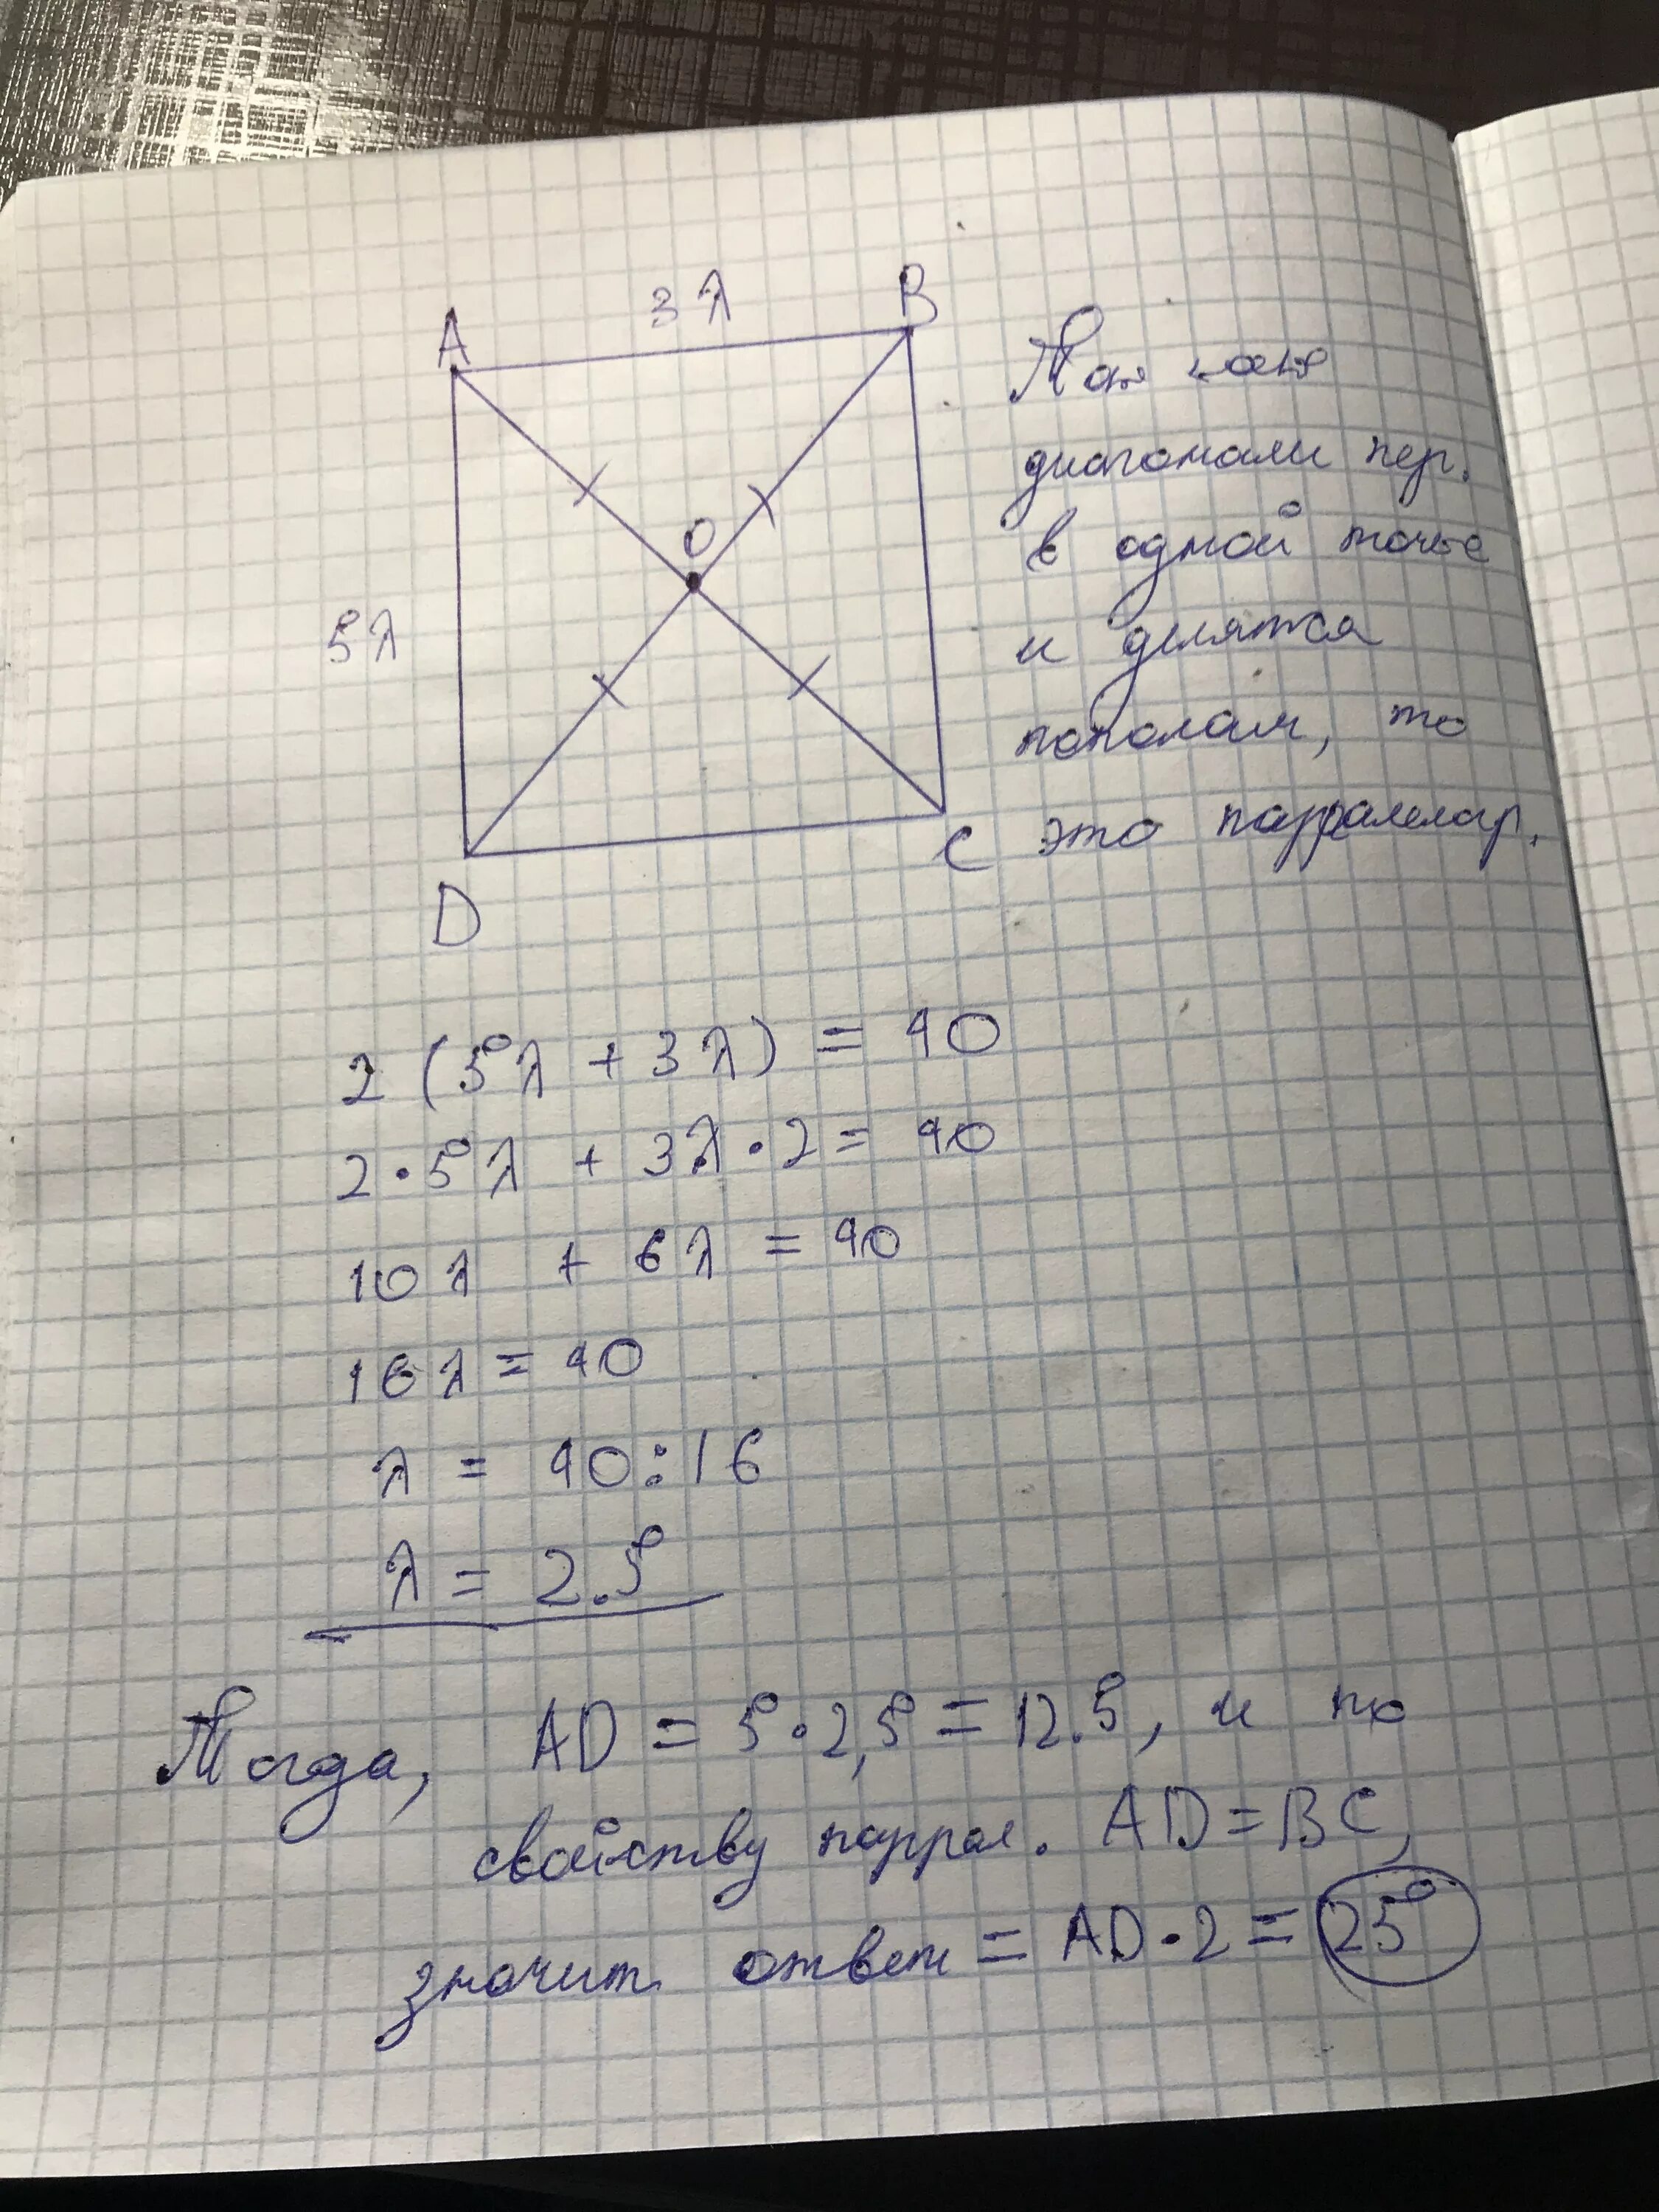 3λ
A
B
O
5λ
D
C
Так как
диагонали пер.
в одной точке
и делятся
пополам, то
это парралелогр.
2 (5λ + 3λ) = 40
2 · 5λ + 3λ · 2 = 40
10λ + 6λ = 40
16λ = 40
λ = 40 : 16
λ = 2.5
Тогда, AD = 5 · 2,5 = 12.5, и по
свойству паррал. AD = BC,
значит ответ = AD · 2 = 25